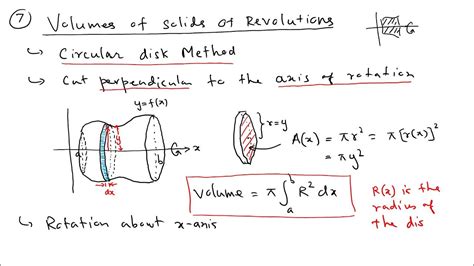 ⑦ Volumes of solids of Revolutions
↳ Circular disk Method
↳ Cut perpendicular to the axis of rotation
y=f(x)
y
a
b
x
dx
r=y
A(x) = πr² = π[r(x)]²
= πy²
Volume = π∫ₐᵇ R² dx
R(x) is the
radius of
the dis
↳ Rotation about x-axis